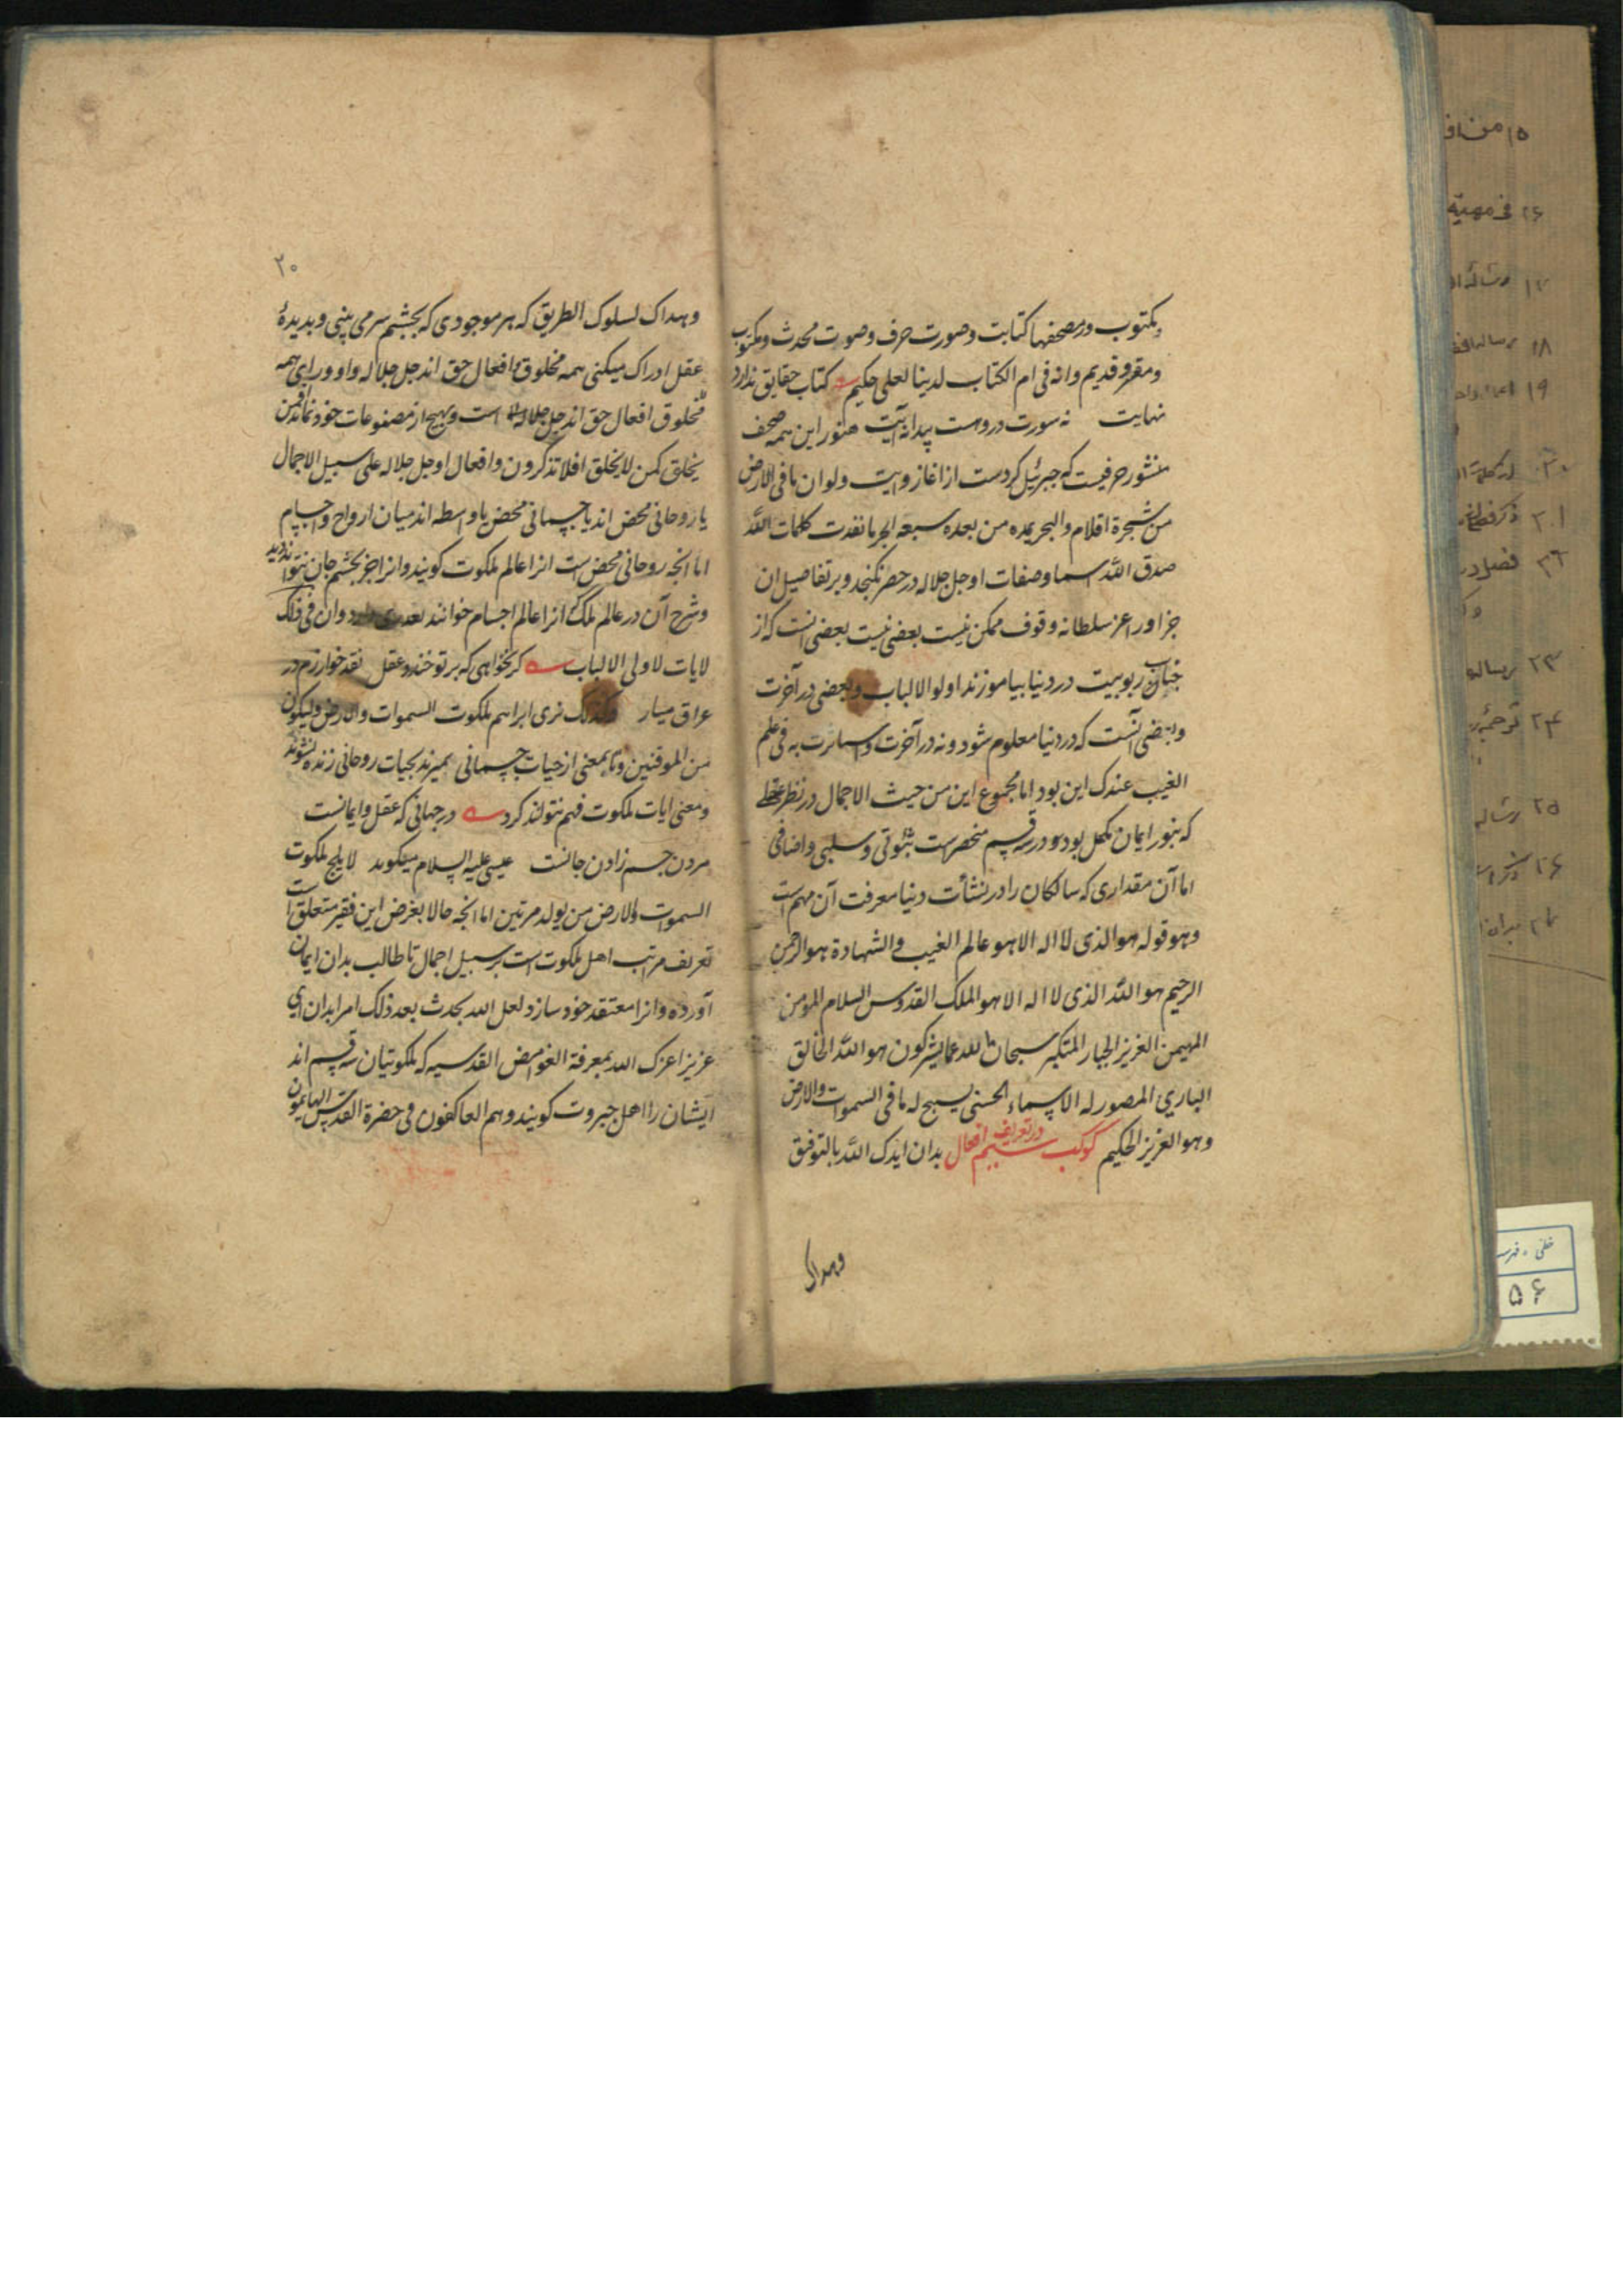 مکتوب در مصحفها کتابت و صورت حرف و صوت محدث و مکتوب
و مقرو قدیم وانه فی ام الکتاب لدینا لعلی حکیم کتاب حقایق ندارد
نهایت نه سورت دروست پیدا نه آیت هنوز این همه صحف
منشور حرفیست که جبرئیل کردست از اغاز روایت ولو ان ما فی الارض
من شجرة اقلام والبحر یمده من بعده سبعة ابحر ما نفدت کلمات الله
صدق الله اسما و صفات او جل جلاله در حصر نگنجد و بر تفاصیل ان
جز او را عز سلطانه وقوف ممکن نیست بعضی انست که از
جناب ربوبیت در دنیا بیاموزند اولوا الالباب و بعضی در آخرت
و بعضی آنست که در دنیا معلوم شود و نه در آخرت واستاثرت به فی علم
الغیب عندک این بود اما مجموع این من حیث الاجمال در نظر عقلی
که بنور ایمان مکحل بود در سه قسم منحصرست ثبوتی و سلبی و اضافی
اما آن مقداری که سالکان را در نشأت دنیا معرفت آن مهم است
وهو قوله هو الذی لا اله الا هو عالم الغیب والشهادة هو الرحمن
الرحیم هو الله الذی لا اله الا هو الملک القدوس السلام المومن
المهیمن العزیز الجبار المتکبر سبحان الله عما یشرکون هو الله الخالق
الباری المصور له الاسماء الحسنی یسبح له ما فی السموات والارض
وهو العزیز الحکیم کوکب سیم در تعریف افعال بدان ایدک الله بالتوفیق
وهداک
۲۰
وهداک لسلوک الطریق که هر موجودی که بچشم سر می بینی و بدیدۀ
عقل ادراک میکنی همه مخلوق و افعال حق اند جل جلاله واو ورای همه
مخلوق افعال حق اند جل جلاله است و بهیچ از مصنوعات خود نماند افمن
یخلق کمن لا یخلق افلا تذکرون و افعال او جل جلاله علی سبیل الاجمال
یا روحانی محض اند یا جسمانی محض یا واسطه اند میان ارواح و اجسام
اما انچه روحانی محض است انرا عالم ملکوت گویند وانرا جز بچشم جان نتوانند دید
و شرح آن در عالم ملک که انرا عالم اجسام خوانند وان فی ذلک
لایات لاولی الالباب گر نخواهی که بر تو خندد عقل نقد خوارزم در
عراق میار وکذلک نری ابراهیم ملکوت السموات والارض ولیکون
من الموقنین و تا بمعنی از حیات جسمانی بمیرند بحیات روحانی زنده نشوند
و معنی ایات ملکوت فهم نتوانند کرد در جهانی که عقل و ایمانست
مردن جسم زادن جانست عیسی علیه السلام میگوید لا یلج ملکوت
السموات والارض من یولد مرتین اما انچه حالا بغرض این فقیر متعلق است
تعریف مراتب اهل ملکوت است بر سبیل اجمال تا طالب بدان ایمان
آورده وانرا معتقد خود سازد لعل الله یحدث بعد ذلک امرا بدان ای
عزیز اعزک الله بمعرفة الغوامض القدسیه که ملکوتیان سه قسم اند
ایشان را اهل جبروت گویند وهم العاکفون فی حضرة القدس الهایمون
۱۸
۱۹
۲۳ رساله
۲۵ رساله
۵۶